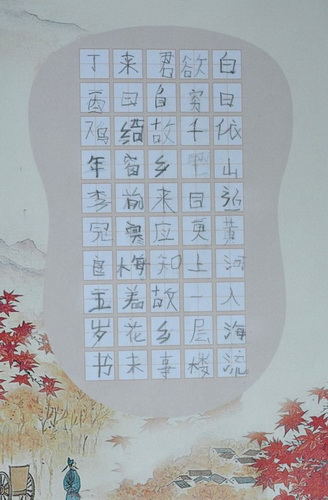 白日依山近黄河入海流
欲穷千目更上一层楼
君自故乡来应知故乡事
来日绮窗前梅着花未
丁酉鸡年李冠玉岁书